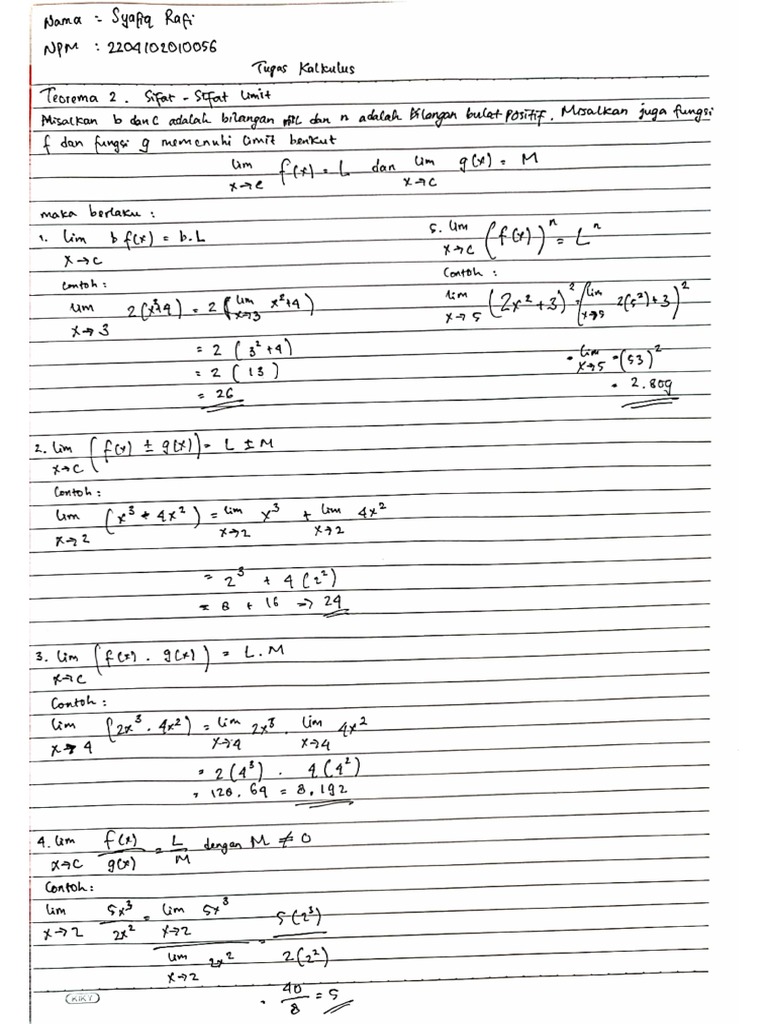 Nama = Syafiq Rafi
NPM : 2204102010056
Tugas Kalkulus
Teorema 2. Sifat - Sifat Limit
Misalkan b dan c adalah bilangan riil dan n adalah bilangan bulat positif. Misalkan juga fungsi
f dan fungsi g memenuhi limit berikut
lim x→c f(x) = L dan lim x→c g(x) = M
maka berlaku :
1. lim x→c b f(x) = b.L
Contoh :
lim x→3 2(x²+4) = 2(lim x→3 x²+4)
= 2 (3²+4)
= 2 (13)
= 26
5. lim x→c (f(x))ⁿ = Lⁿ
Contoh :
lim x→5 (2x²+3)² = (lim x→5 2(5²)+3)²
= lim x→5 = (53)²
= 2.809
2. lim x→c (f(x) ± g(x)) = L ± M
Contoh :
lim x→2 (x³ + 4x²) = lim x→2 x³ + lim x→2 4x²
= 2³ + 4 (2²)
= 8 + 16 => 24
3. lim x→c (f(x) . g(x)) = L.M
Contoh :
lim x→4 (2x³ . 4x²) = lim x→4 2x³ . lim x→4 4x²
= 2(4³) . 4(4²)
= 128 . 64 = 8.192
4. lim x→c f(x)/g(x) = L/M dengan M ≠ 0
Contoh :
lim x→2 5x³/2x² = lim x→2 5x³ / lim x→2 2x² = 5(2³)/2(2²)
= 40/8 = 5
KIKY